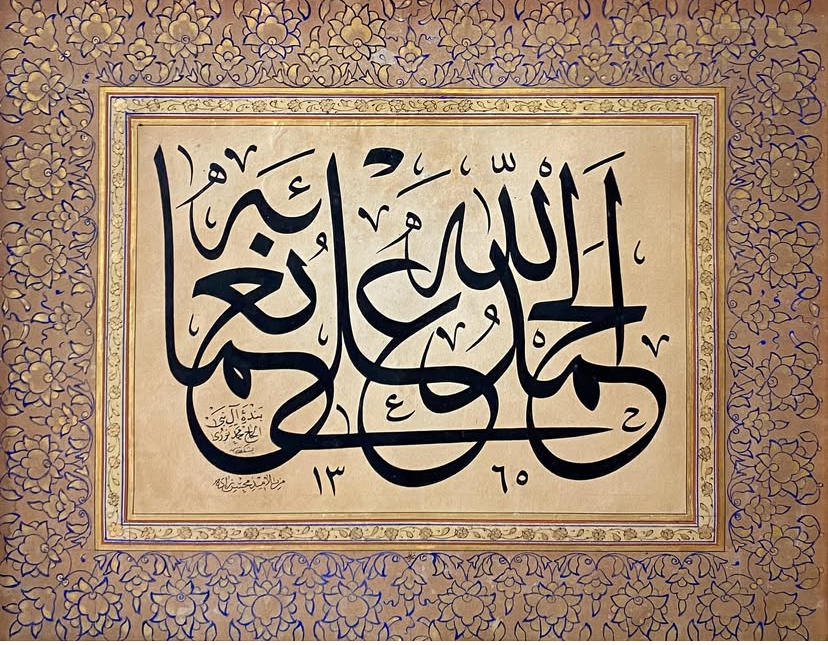 الحمد لله على نعمائه
بندهٔ آل نبى
الحاج محمد نورى
١٣٦٥